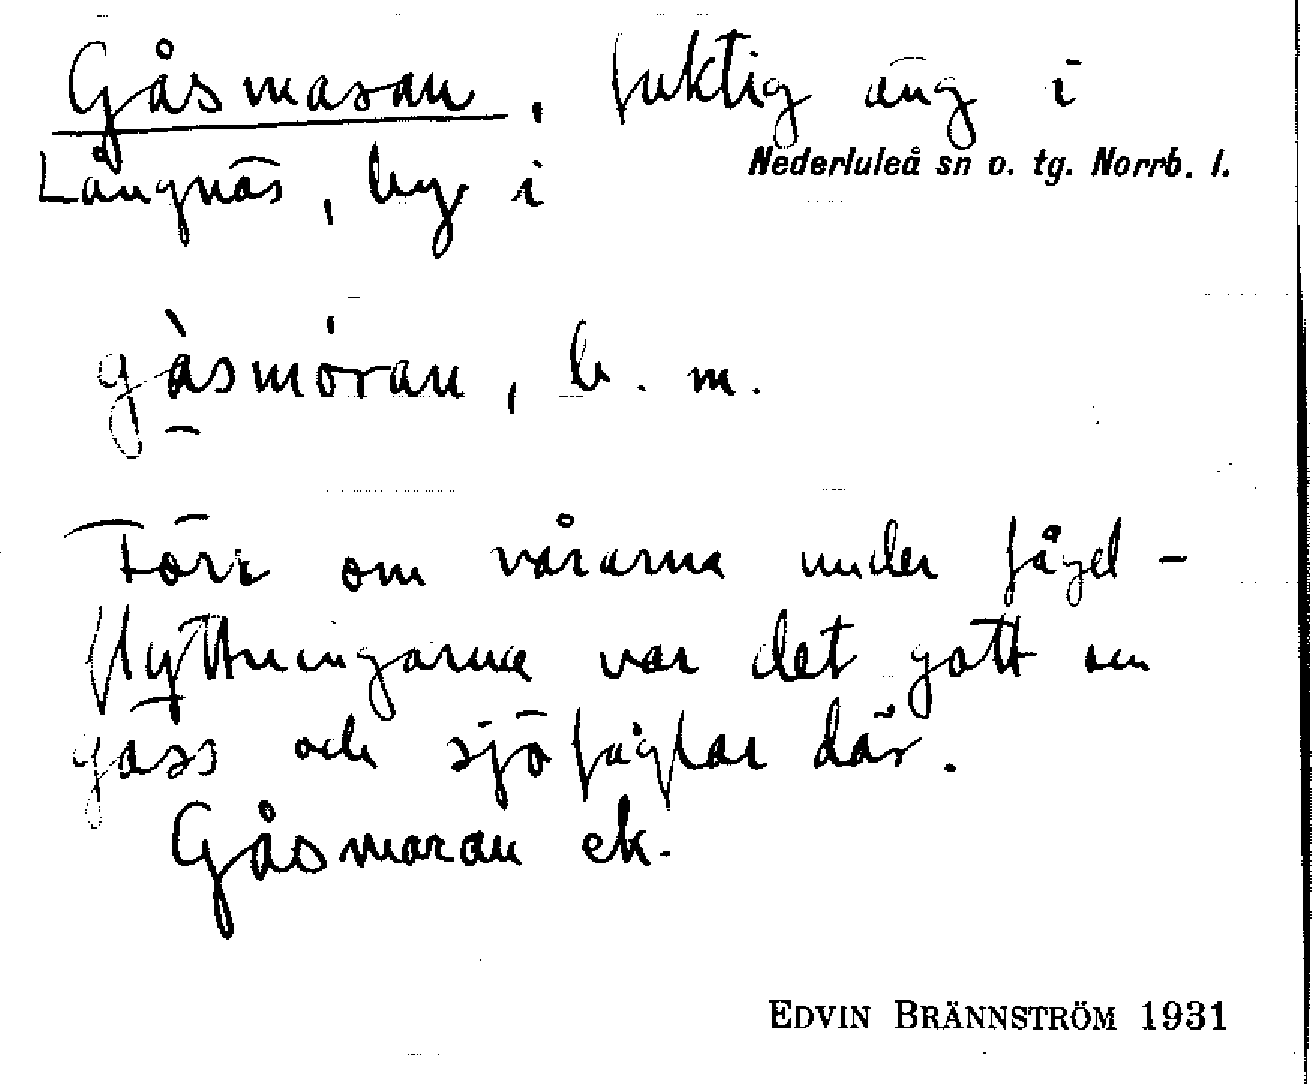 Gåsmaran, fuktig äng i
Nederluleå sn o. tg. Norrb. l.
Långnäs, by i
gåsmóran, b. m.
Förr om vårarna under fågel-
flyttningarna var det gott om
gäss och sjöfåglar där.
Gåsmaran ek.
EDVIN BRÄNNSTRÖM 1931